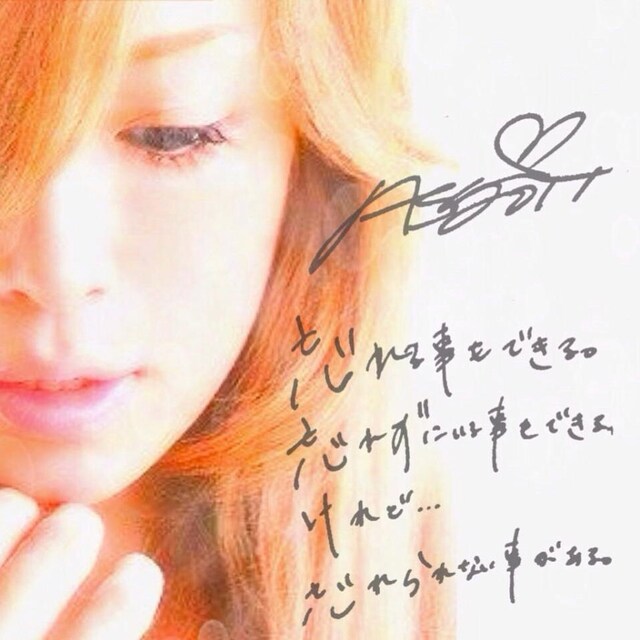 忘れる事もできる。
忘れずにいる事もできる。
けれど...
忘れられない事がある。